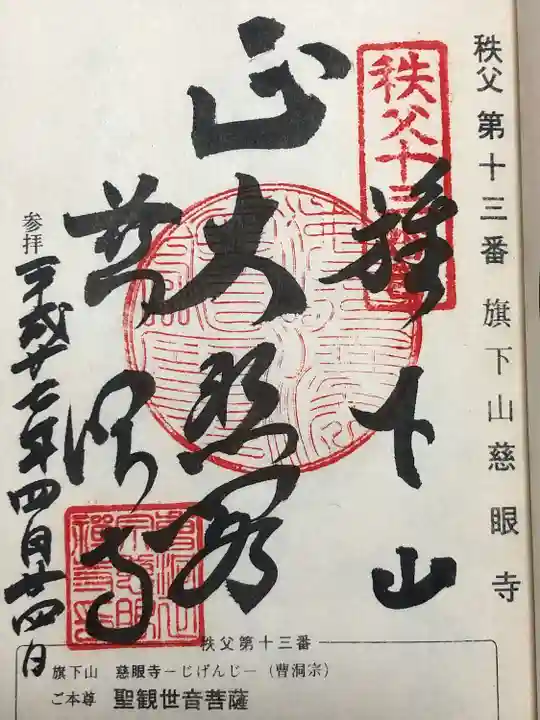 秩父 第十三番 旗下山 慈眼寺
秩父十三
旗下山
正大悲殿
慈眼寺
参拝
平成廿七年四月廿四日
秩父第十三番
旗下山 慈眼寺ーじげんじー（曹洞宗）
ご本尊 聖観世音菩薩